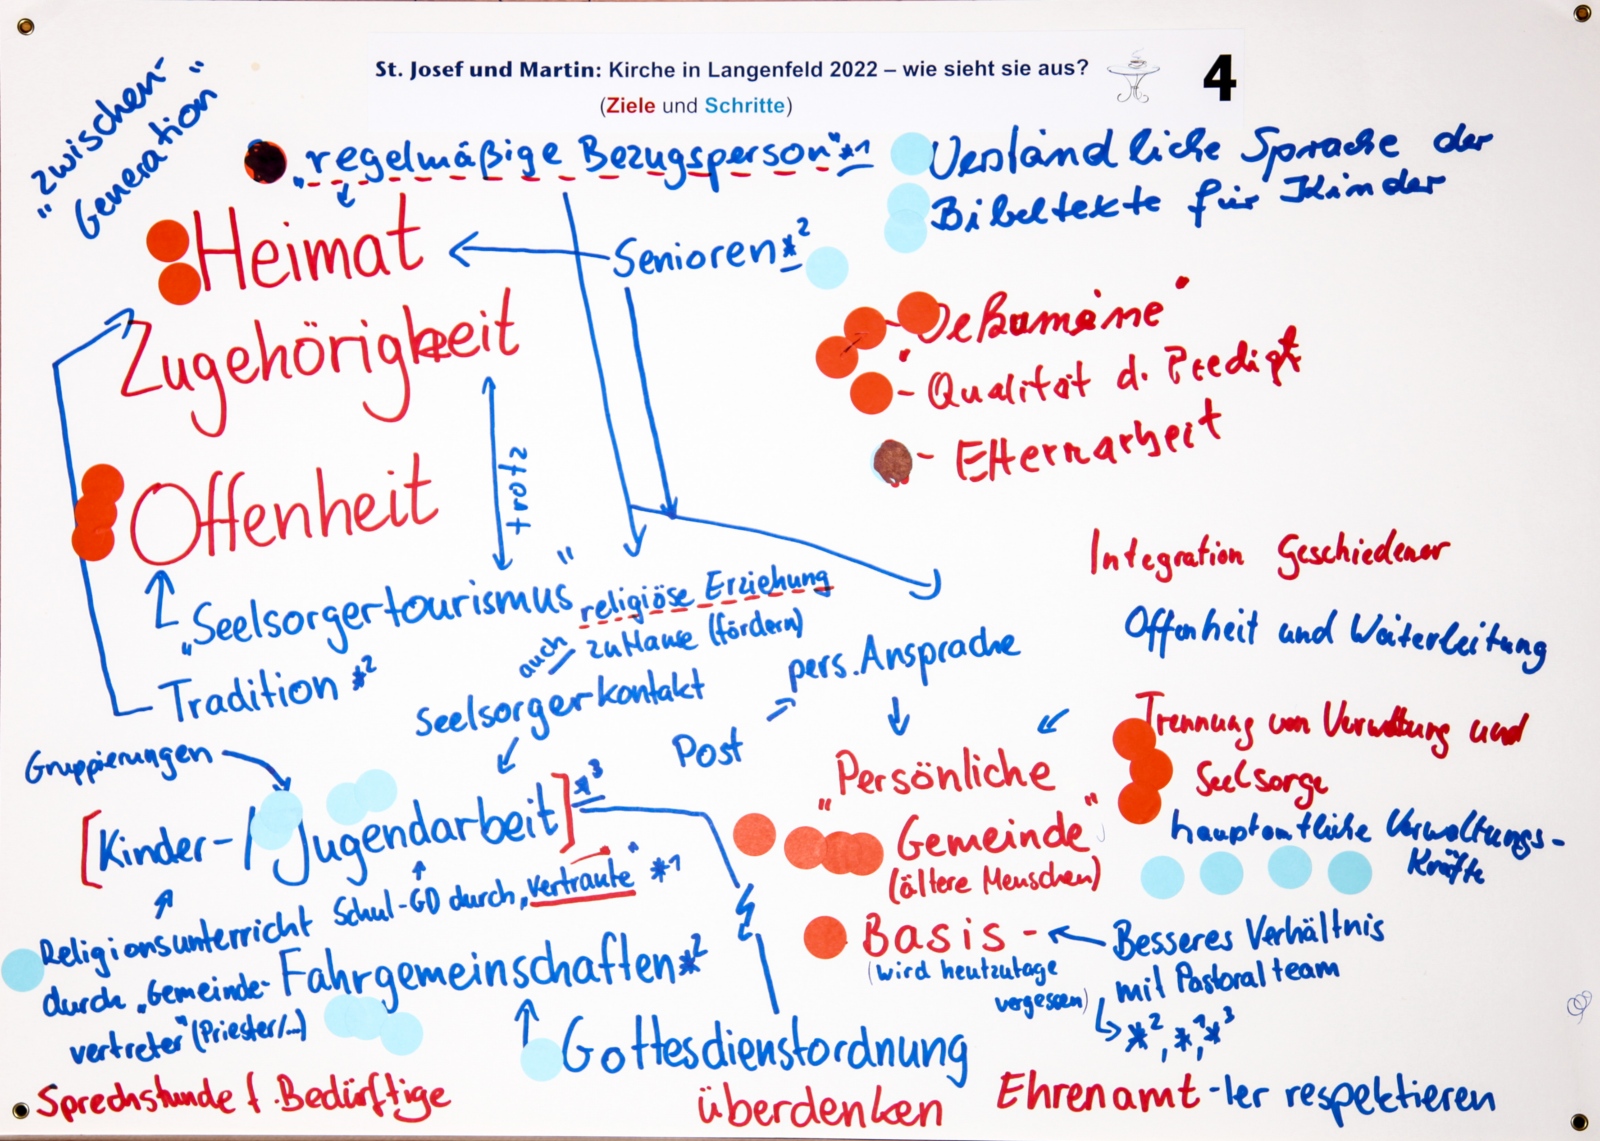 St. Josef und Martin: Kirche in Langenfeld 2022 – wie sieht sie aus?
(Ziele und Schritte)
4
"zwischen-
Generation"
"regelmäßige Bezugsperson" *1
Verständliche Sprache der
Bibeltexte für Kinder
Heimat
Senioren *2
Zugehörigkeit
- Oekumene
- Qualität d. Predigt
- Elternarbeit
trotz
Offenheit
Integration Geschiedener
Offenheit und Weiterleitung
"Seelsorgertourismus"
religiöse Erziehung
auch zuHause (fördern)
Tradition *2
Seelsorgerkontakt
Post
pers. Ansprache
Trennung von Verwaltung und
Seelsorge
hauptamtliche Verwaltungs-
Kräfte
Gruppierungen
[Kinder-/Jugendarbeit] *3
"Persönliche
Gemeinde"
(ältere Menschen)
Schul-GD durch "Vertraute" *1
Religionsunterricht
durch "Gemeinde-
vertreter" (Priester/...)
Fahrgemeinschaften *2
Basis -
(wird heutzutage
vergessen)
Besseres Verhältnis
mit Pastoralteam
*2, *1, *3
Gottesdienstordnung
überdenken
Sprechstunde f. Bedürftige
Ehrenamt-ler respektieren